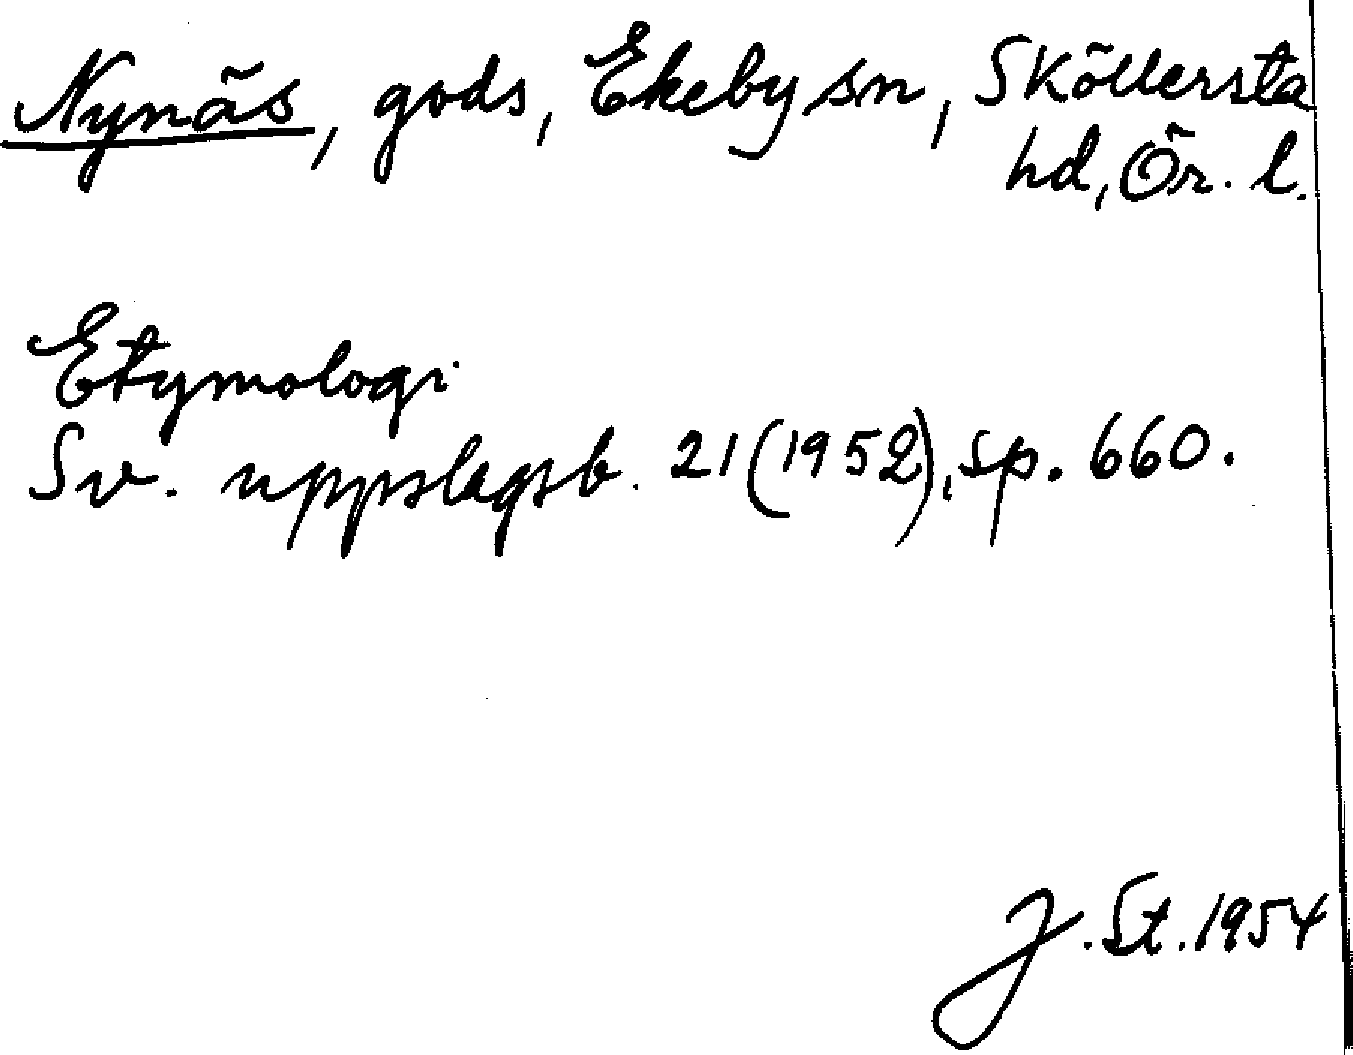 Nynäs, gods, Ekeby sn, Sköllersta
hd, Ör. l.
Etymologi
Sv. uppslagsb. 21 (1952), sp. 660.
J. St. 1954